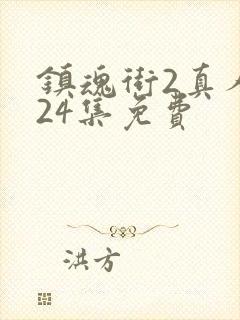 鎮魂街2真人
24集免費
洪方